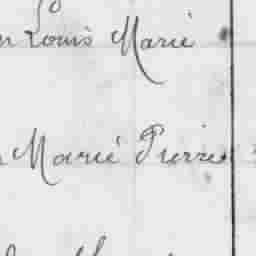 Louis Marie
Marie Pierre